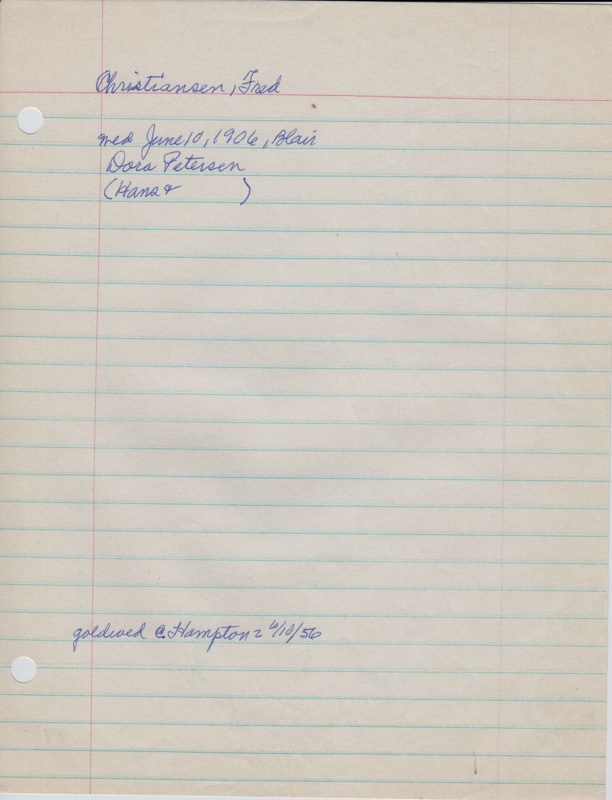 Christiansen, Fred
med June 10, 1906, Blair
Dora Petersen
(Hans &        )
goldwed @ Hampton = 6/10/56